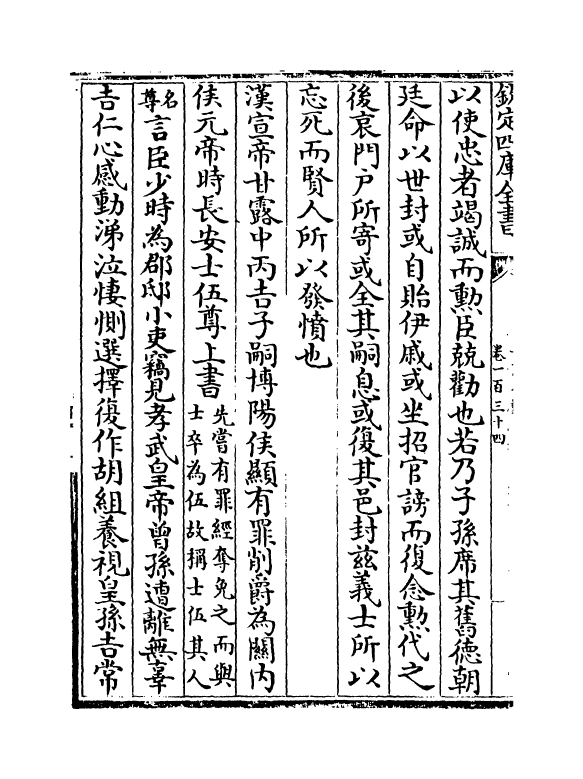 欽定四庫全書
卷一百三十四
以使忠者竭誠而勲臣兢勸也若乃子孫席其舊德朝
廷命以世封或自貽伊戚或坐招官謗而復念勲代之
後哀門戸所寄或全其嗣息或復其邑封兹義士所以
忘死而賢人所以發憤也
漢宣帝甘露中丙吉子嗣博陽侯顯有罪削爵為關内
侯元帝時長安士伍尊上書先嘗有罪經奪免之而與
士卒為伍故稱士伍其人
名
尊言臣少時為郡邸小吏竊見孝武皇帝曽孫遭離無辜
吉仁心感動涕泣悽惻選擇復作胡組養視皇孫吉常